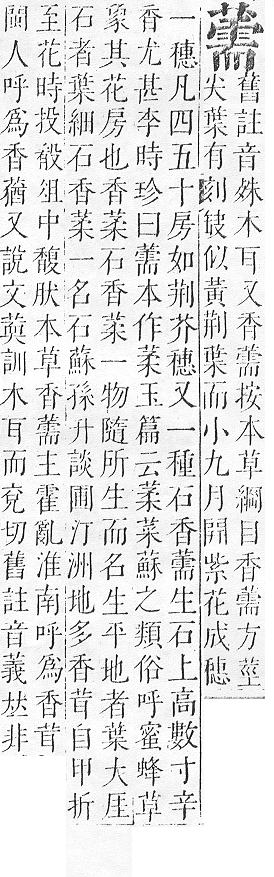 薷
舊註音姝木耳又香薷按本草綱目香薷方莖
尖葉有刻缺似黃荊葉而小九月開紫花成穗
一穗凡四五十房如荊芥穗又一種石香薷生石上高數寸辛
香尤甚李時珍曰薷本作葇玉篇云葇菜蘇之類俗呼蜜蜂草
象其花房也香葇石香葇一物隨所生而名生平地者葉大厓
石者葉細石香葇一名石蘇孫升談圃汀洲地多香茸自甲折
至花時投殽俎中馥肰本草香薷主霍亂淮南呼爲香茸
閩人呼爲香蕕又說文䓴訓木耳而兗切舊註音義𠀤非